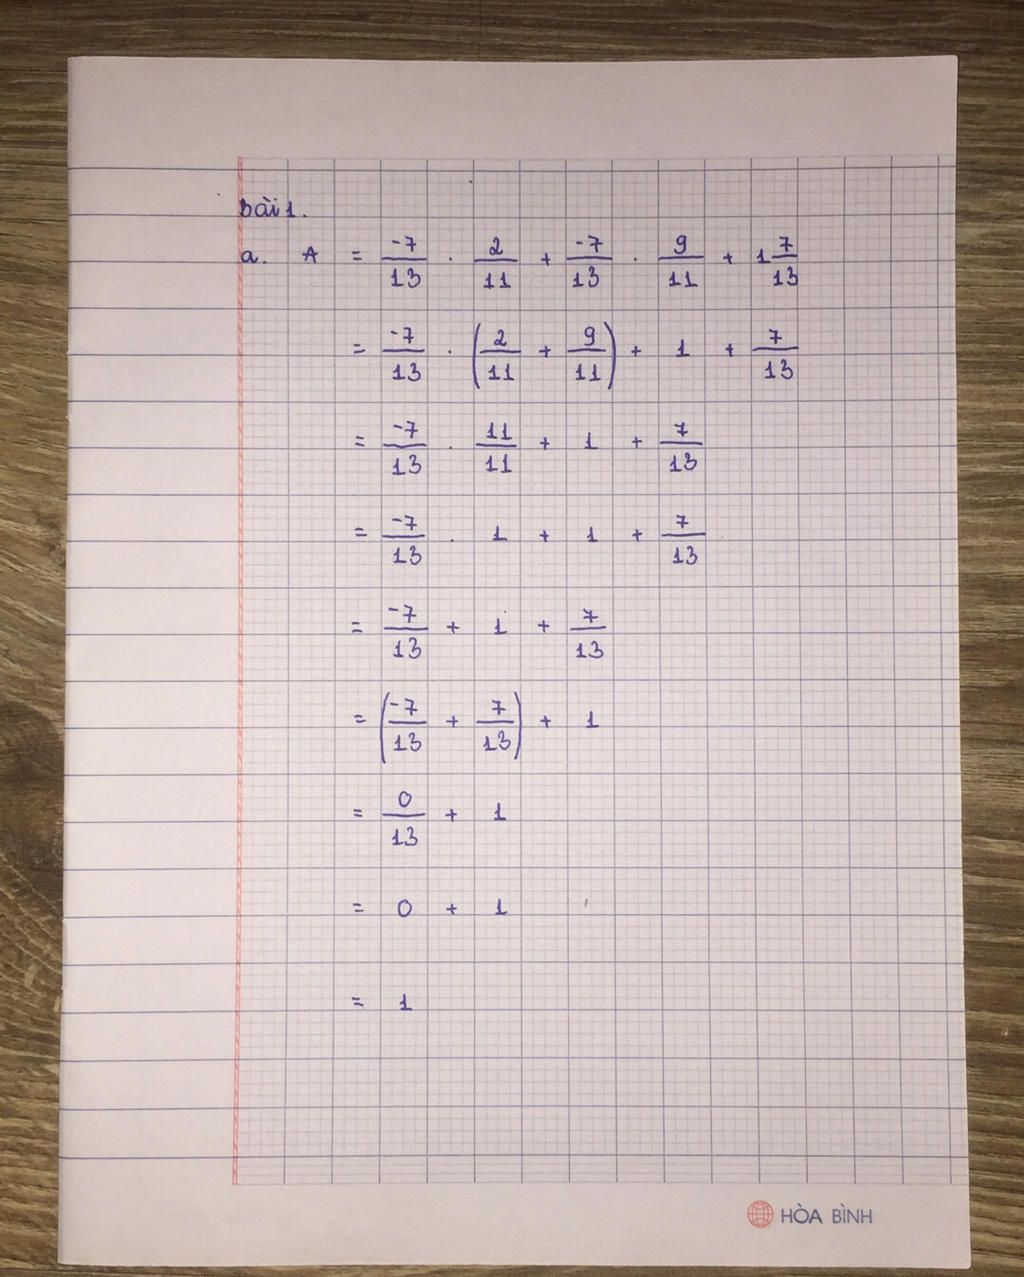 bài 1.
a. A = -7/13 . 2/11 + -7/13 . 9/11 + 1 7/13
= -7/13 . (2/11 + 9/11) + 1 + 7/13
= -7/13 . 11/11 + 1 + 7/13
= -7/13 . 1 + 1 + 7/13
= -7/13 + 1 + 7/13
= (-7/13 + 7/13) + 1
= 0/13 + 1
= 0 + 1
= 1
HÒA BÌNH